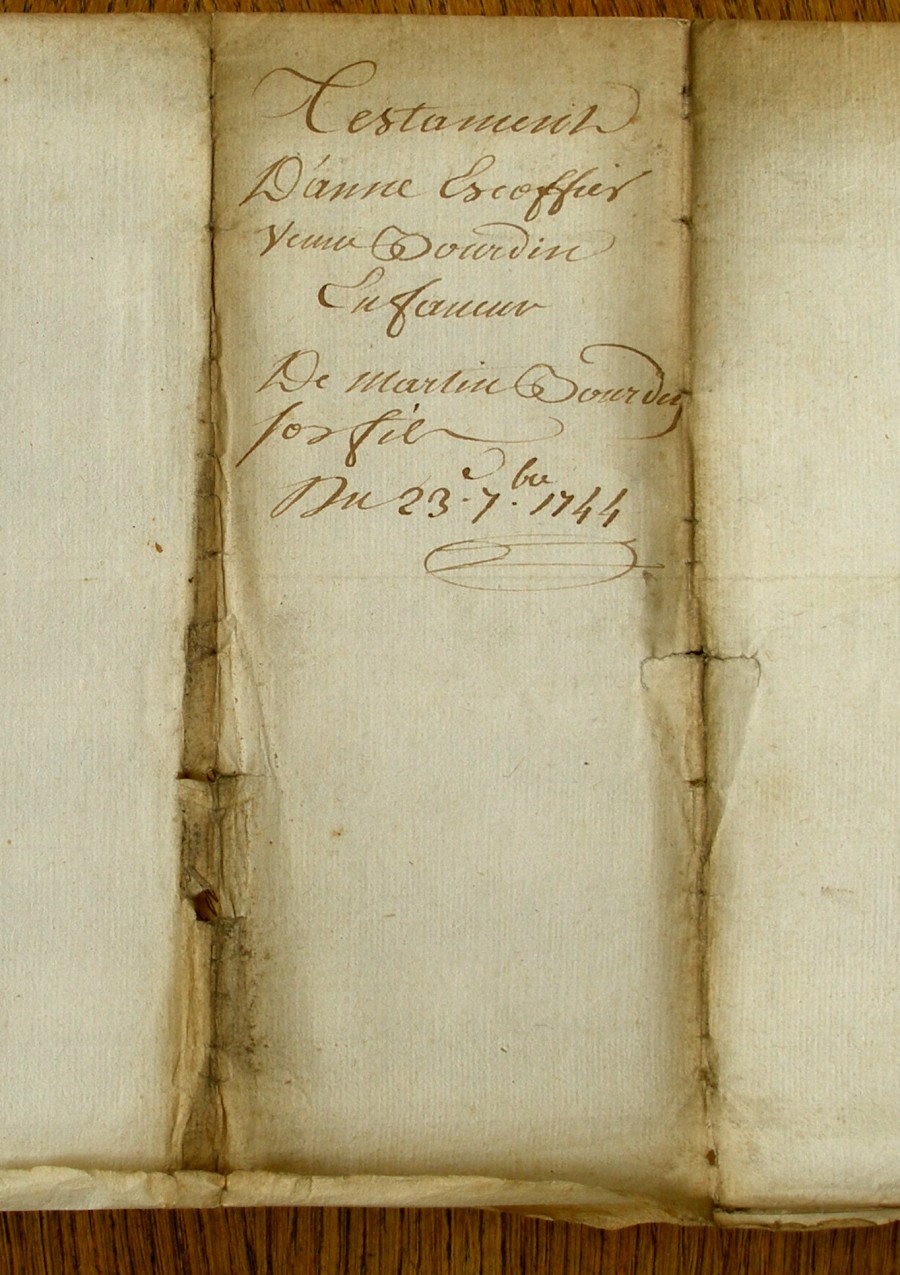 Testament
D'anne Escoffier
Veuve Bourdin
En faveur
De martin Bourdin
son fils
Du 23.e 7.bre 1744